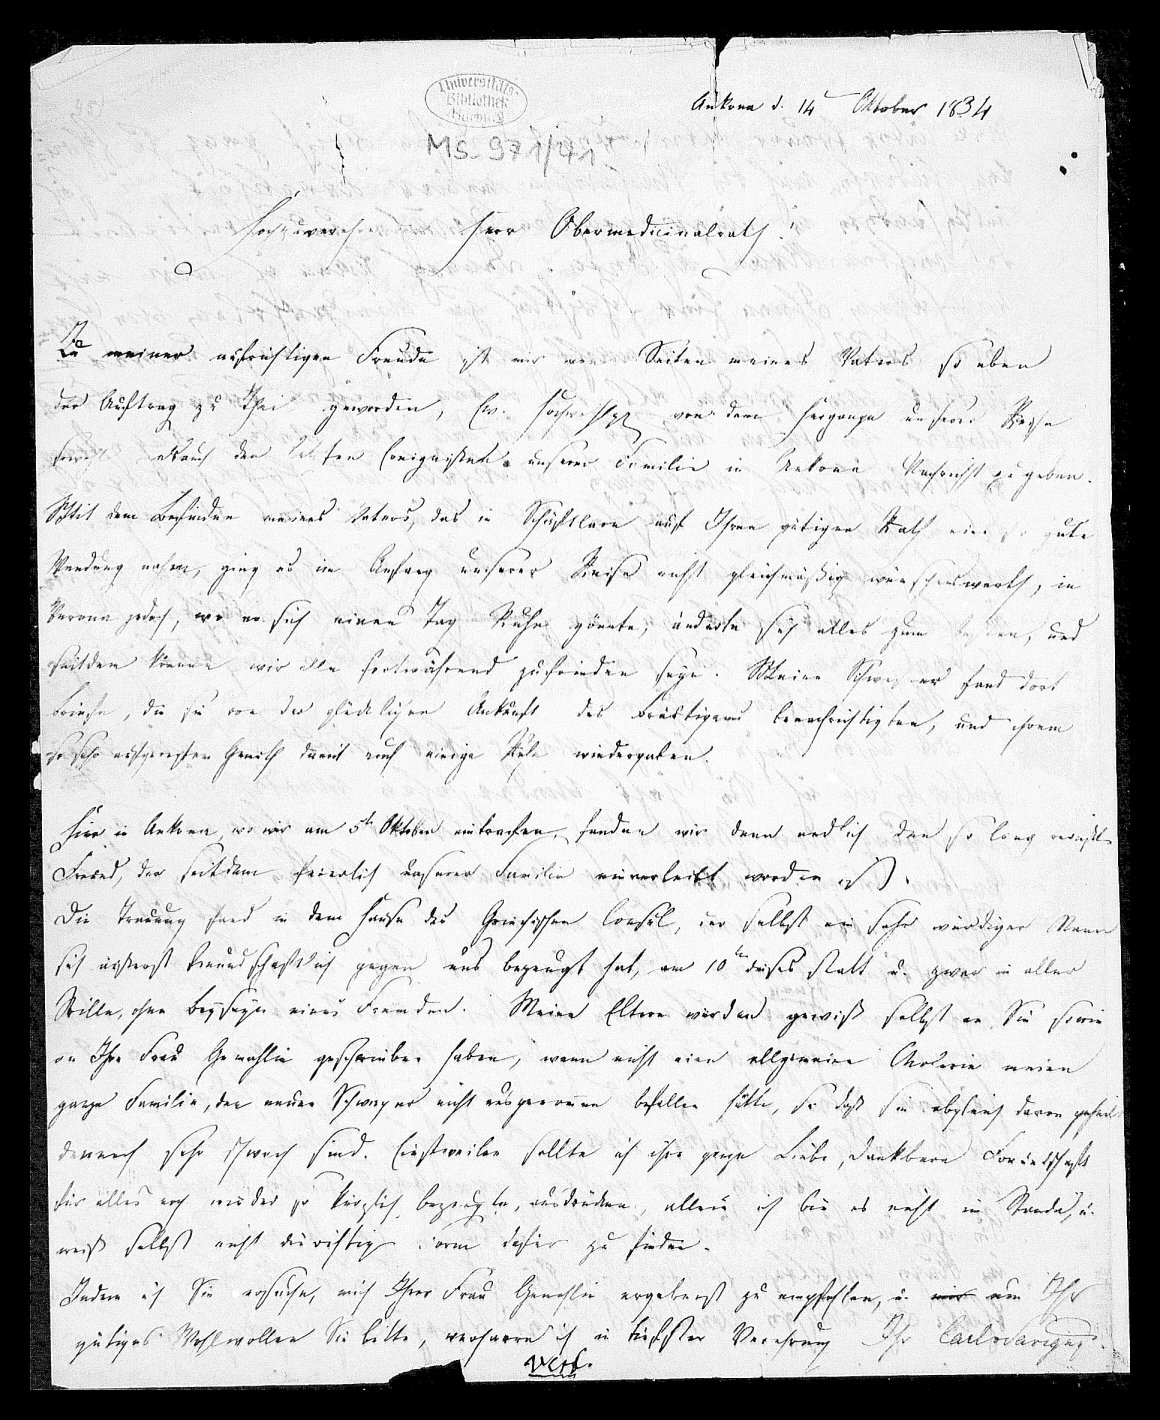 Universitäts-
Bibliothek
Marburg
MS. 971/41
Ankona d. 14 Oktober 1834
Hochzuverehrender Herr Obermedicinalrath!
Zu meiner aufrichtigen Freude ist mir von Seiten meines Vaters so eben
der Auftrag zu Theil geworden, Ew. von dem Hergange unserer Reise
sowohl als auch den letzten Ereignissen unserer Familie in Ankona Nachricht zu geben.
Mit dem Befinden meines Vaters, das in Schäftlarn auf Ihren gütigen Rath eine so gute
Wendung nahm, ging es im Anfang unserer Reise nicht gleichmäßig wünschenswerth, in
Verona jedoch, wo er sich einen Tag Ruhe gönnte, änderte sich alles zum besten, und
seitdem können wir alle fortwährend zufrieden seyn. Meine Schwester fand dort
Briefe, die sie von der glücklichen Ankunft des Bräutigams benachrichtigten, und ihrem
so sehr aufgeregten Gemüth damit auch einige Ruhe wiedergaben.
Hier in Ankona, wo wir am 5ten Oktober eintrafen, fanden wir denn endlich den so lang
Freund, der seitdem feierlich unserer Familie einverleibt worden ist.
Die Trauung fand in dem Hause des Griechischen Consul, der selbst ein sehr würdiger Mann
sich äußerst freundschaftlich gegen uns bezeugt hat, am 10ten dieses statt u. zwar in aller
Stille, ohne Beyseyn eines Fremden. Meine Eltern würden gewiß selbst an Sie sowie
an Ihre Frau Gemahlin geschrieben haben, wenn nicht eine allgemeine Cholerine meine
ganze Familie, den neuen Schwager nicht ausgenommen befallen hätte, so daß sie obgleich davon geheilt
dennoch sehr schwach sind. Einstweilen sollte ich ihre ganze Liebe, dankbare Freundschaft
für alles noch wieder so kürzlich bezeugte, ausdrücken, allein ich bin es nicht im Stande, u.
weiß selbst nicht die richtige Form dafür zu finden.
Indem ich Sie ersuche, mich Ihrer Frau Gemahlin ergebenst zu empfehlen, u. mir um Ihr
gütiges Wohlwollen Sie bitte, verharre ich in tiefster Verehrung Ihr
vert.